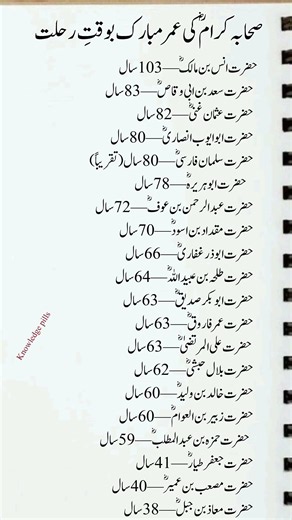 صحابہ کرامؓ کی عمر مبارک بوقتِ رحلت
حضرت انس بن مالکؓ—103 سال
حضرت سعد بن ابی وقاصؓ—83 سال
حضرت عثمان غنیؓ—82 سال
حضرت ابو ایوب انصاریؓ—80 سال
حضرت سلمان فارسیؓ—80 سال (تقریباً)
حضرت ابو ہریرہؓ—78 سال
حضرت عبدالرحمن بن عوفؓ—72 سال
حضرت مقداد بن اسودؓ—70 سال
حضرت ابوذر غفاریؓ—66 سال
حضرت طلحہ بن عبید اللہؓ—64 سال
حضرت ابو بکر صدیقؓ—63 سال
حضرت عمر فاروقؓ—63 سال
حضرت علی المرتضیٰؓ—63 سال
حضرت بلال حبشیؓ—62 سال
حضرت خالد بن ولیدؓ—60 سال
حضرت زبیر بن العوامؓ—60 سال
حضرت حمزہ بن عبدالمطلبؓ—59 سال
حضرت جعفر طیارؓ—41 سال
حضرت مصعب بن عمیرؓ—40 سال
حضرت معاذ بن جبلؓ—38 سال
Knowledge pills